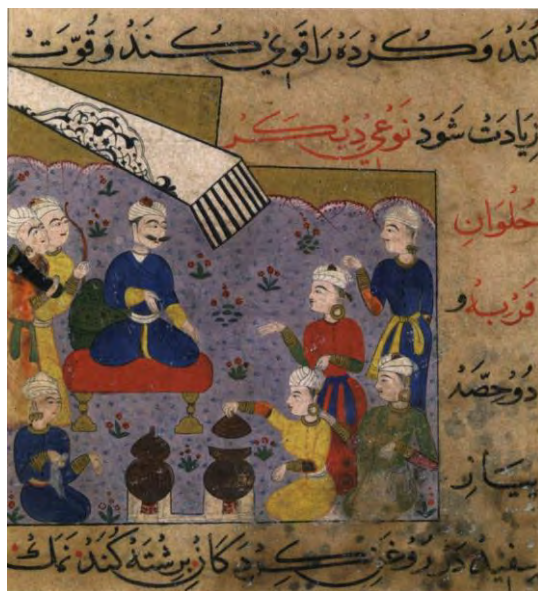 کُنَند وَ کُرده رَا قَوِيْ کُنَند وَ قُوّتْ
زِیادَتْ شَوَدْ نَوعِيْ دِیکَر
حُلْوَانِ
فَربِهْ و
دُو حِصّه
پیَازِ
سفیدْ دَر رُوغَنِ بِرِشْتَه کُنَند نَمَكْ